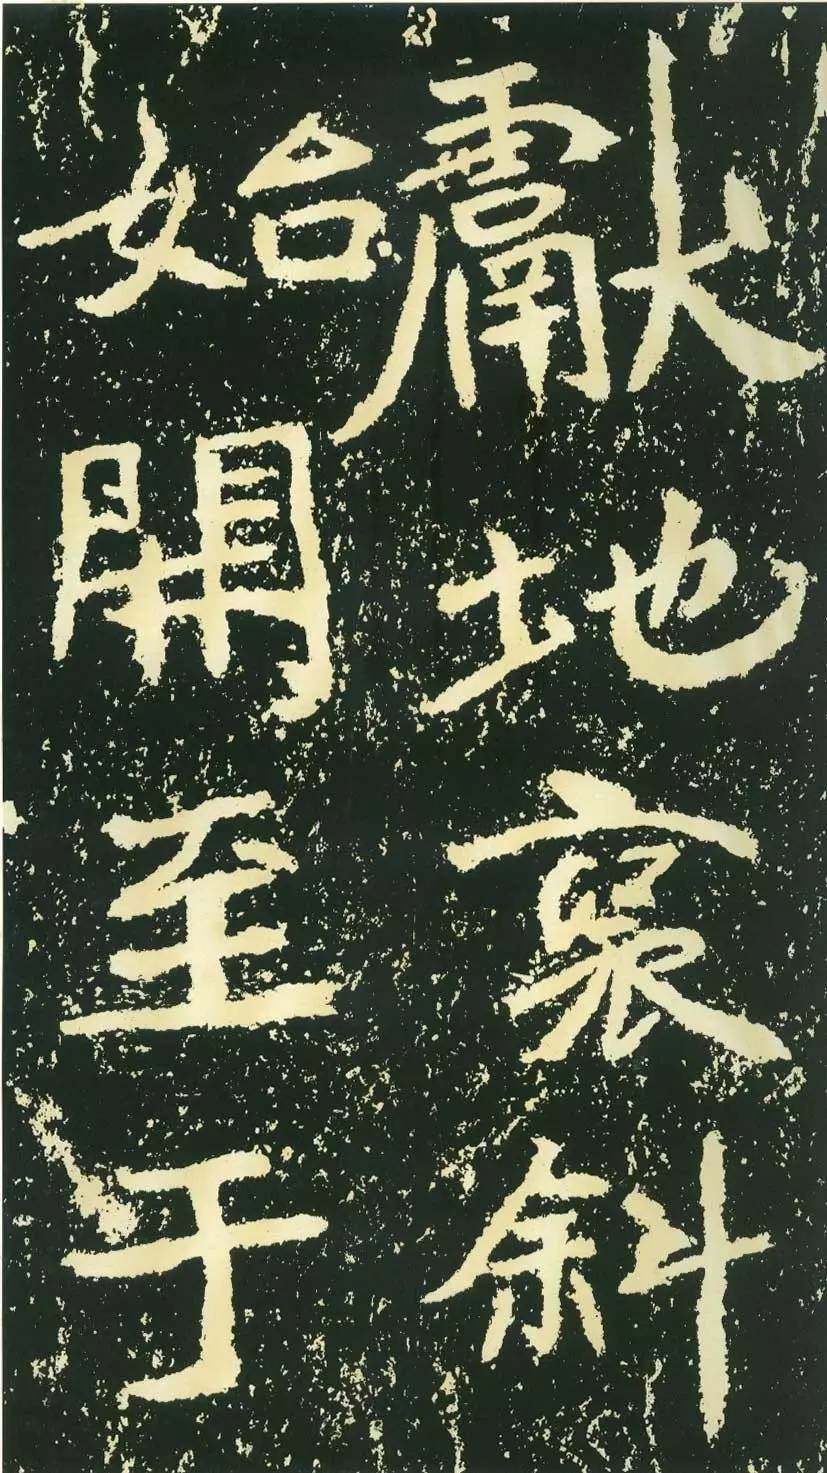 獻地襃斜
始開至于